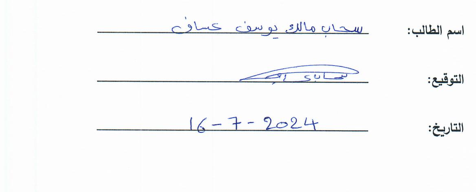 اسم الطالب: سحاب مالك يوسف عساف
التوقيع:
التاريخ: 16-7-2024